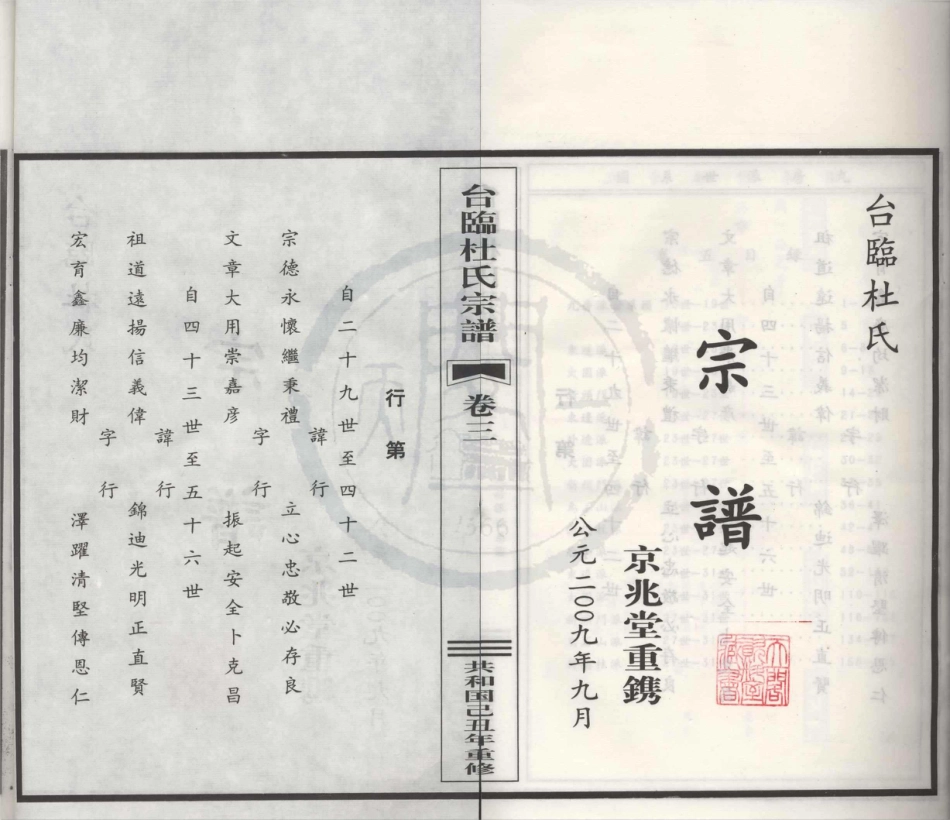 台臨杜氏
宗譜
京兆堂重鐫
公元二〇〇九年九月
台臨杜氏宗譜
卷三
共和国己丑年重修
行第
自二十九世至四十二世
諱行
宗德永懷繼秉禮 立心忠敬必存良
字行
文章大用崇嘉彦 振起安全卜克昌
自四十三世至五十六世
諱行
祖道遠揚信義偉 錦迪光明正直賢
字行
宏育鑫廉均潔財 澤躍清堅傳恩仁